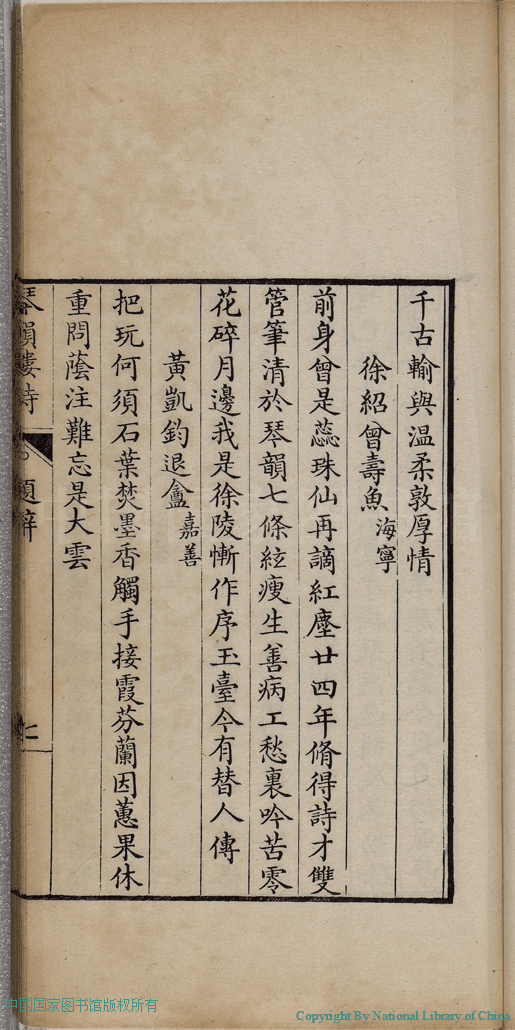 千古輸與温柔敦厚情
徐紹曾壽魚海寧
前身曾是蕊珠仙再謫紅塵廿四年脩得詩才雙
管筆清於琴韻七條絃瘦生善病工愁裏吟苦零
花碎月邊我是徐陵慚作序玉臺今有替人傳
黃凱鈞退盦嘉善
把玩何須石葉焚墨香觸手接霞芬蘭因蕙果休
重問蔭注難忘是大雲
琴韻樓詩 題辭 二
中国国家图书馆版权所有
Copyright By National Library of China